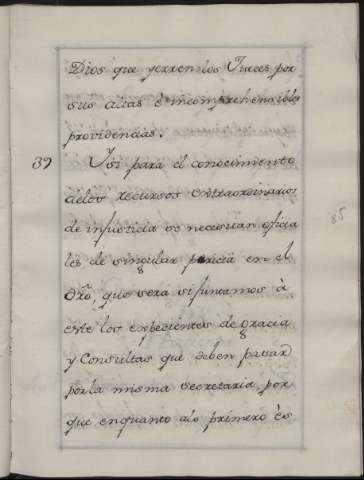 Dios que yerren los Jueces por
sus altas è incomprehensibles
providencias.
39 Y si para el conocimiento
delos recursos extraordinarios
de injusticia se necesitan oficia
les de singular pericia en el
Dro, que será si juntamos à
este los expedientes de gracia
y Consultas que deben pasar
por la misma secretaria, por
que enquanto alo primero és
85